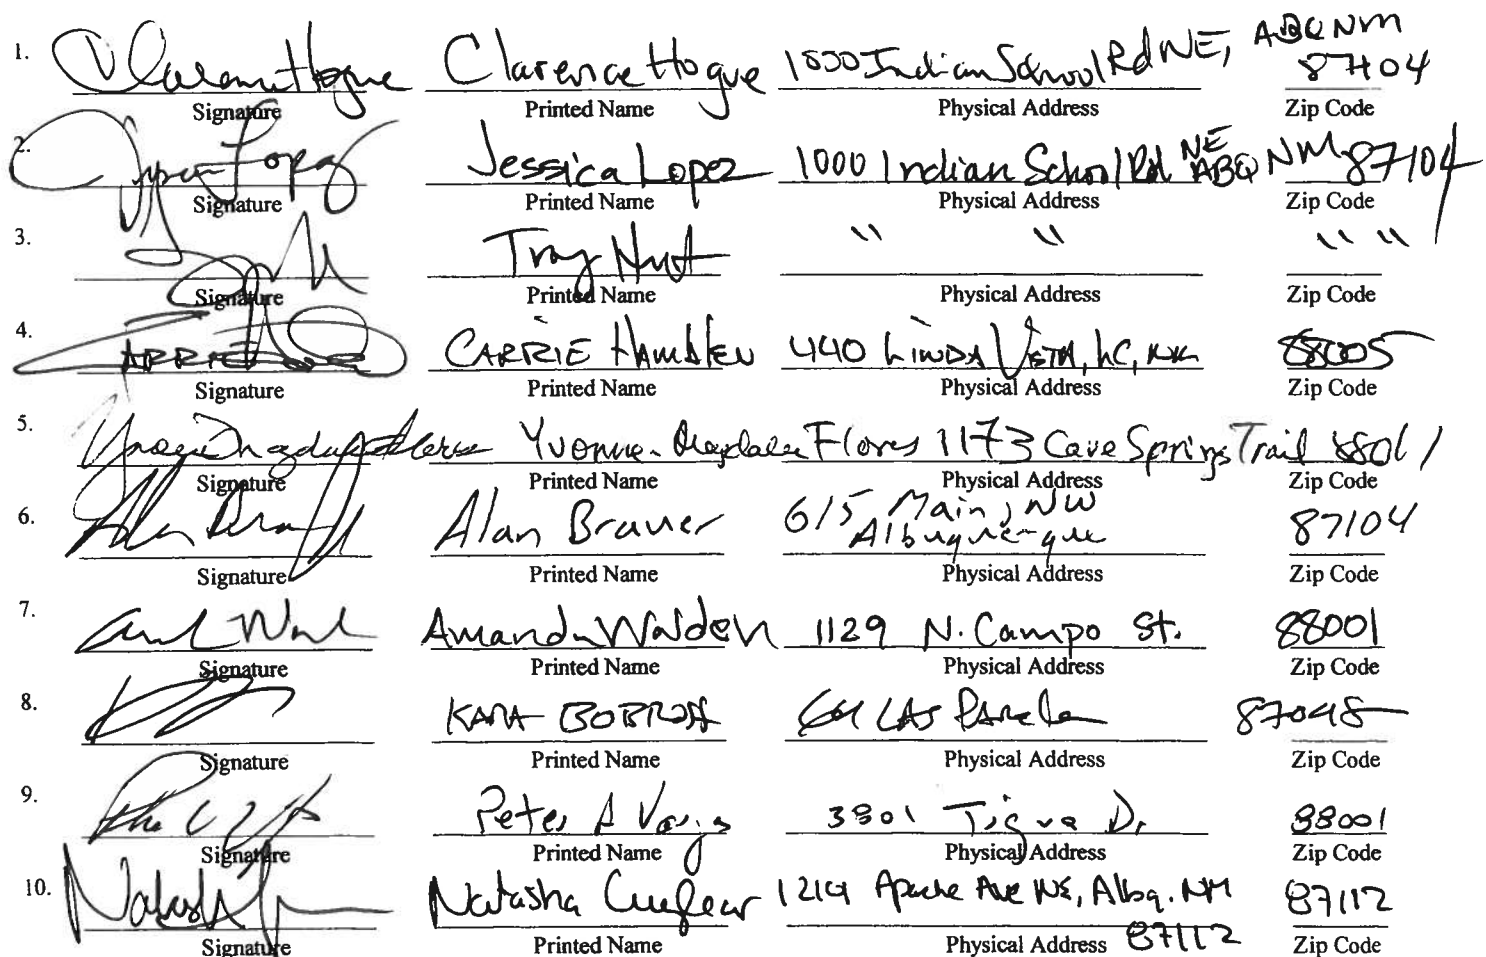 1. Clarence Hogue Clarence Hogue 1000 Indian School Rd NE, ABQ NM 87104
Signature Printed Name Physical Address Zip Code
2. Lopez Jessica Lopez 1000 Indian School Rd NE ABQ NM 87104
Signature Printed Name Physical Address Zip Code
3. Troy " " " "
Signature Printed Name Physical Address Zip Code
4. CARRIE Hamblen 440 LINDA VISTA, LC, NM 88005
Signature Printed Name Physical Address Zip Code
5. Flores Yvonne Flores 1173 Cave Springs Trail 88011
Signature Printed Name Physical Address Zip Code
6. Alan Alan Brauer 615 Main, NW Albuquerque 87104
Signature Printed Name Physical Address Zip Code
7. Amanda Walden 1129 N. Campo St. 88001
Signature Printed Name Physical Address Zip Code
8. KARA BOBROFF LAS 87048
Signature Printed Name Physical Address Zip Code
9. Peter A 3801 Tigua Dr 88001
Signature Printed Name Physical Address Zip Code
10. Natasha Natasha 1219 Apache Ave NE, Albq. NM 87112
87112
Signature Printed Name Physical Address Zip Code